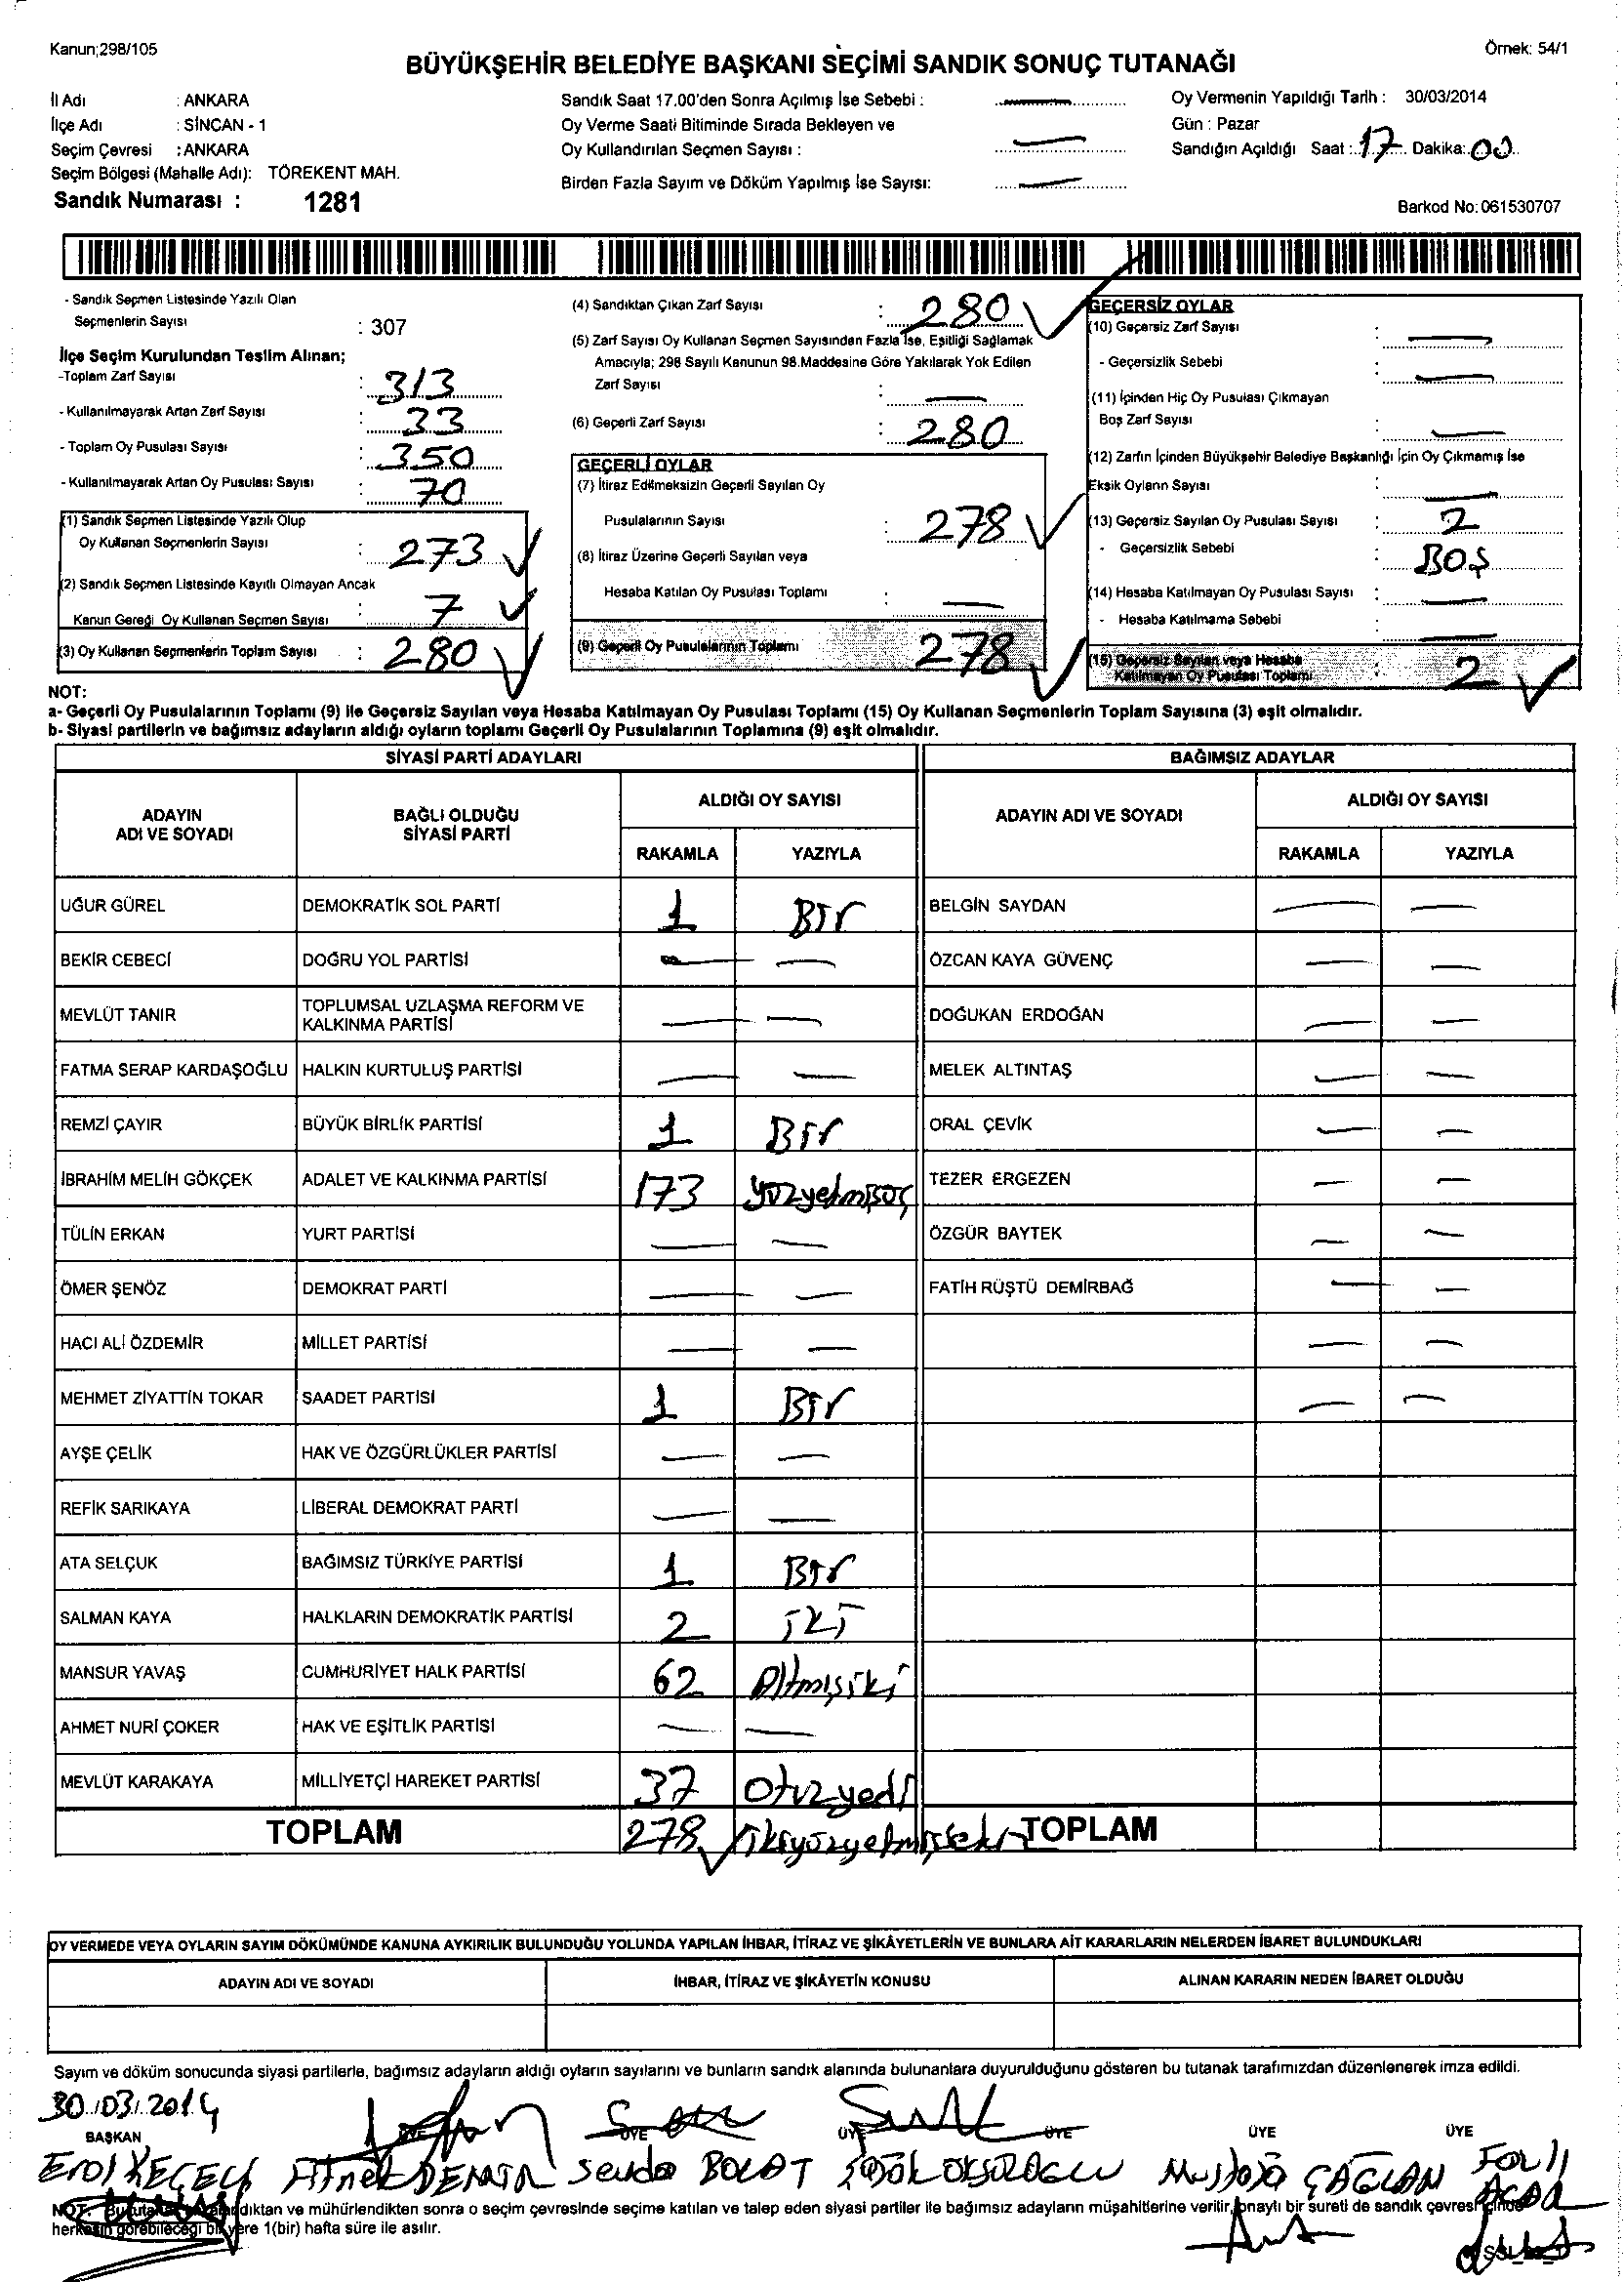 Kanun;298/105
Örnek: 54/1
BÜYÜKŞEHİR BELEDİYE BAŞKANI SEÇİMİ SANDIK SONUÇ TUTANAĞI
İl Adı : ANKARA
İlçe Adı : SİNCAN - 1
Seçim Çevresi : ANKARA
Seçim Bölgesi (Mahalle Adı): TÖREKENT MAH.
Sandık Numarası : 1281
Sandık Saat 17.00'den Sonra Açılmış İse Sebebi :
Oy Verme Saati Bitiminde Sırada Bekleyen ve
Oy Kullandırılan Seçmen Sayısı :
Birden Fazla Sayım ve Döküm Yapılmış İse Sayısı:
Oy Vermenin Yapıldığı Tarih : 30/03/2014
Gün : Pazar
Sandığın Açıldığı Saat : 17 Dakika: 00
Barkod No: 061530707
- Sandık Seçmen Listesinde Yazılı Olan
Seçmenlerin Sayısı : 307
İlçe Seçim Kurulundan Teslim Alınan;
-Toplam Zarf Sayısı : 313
- Kullanılmayarak Artan Zarf Sayısı : 33
- Toplam Oy Pusulası Sayısı : 350
- Kullanılmayarak Artan Oy Pusulası Sayısı : 70
(1) Sandık Seçmen Listesinde Yazılı Olup
Oy Kullanan Seçmenlerin Sayısı : 273
(2) Sandık Seçmen Listesinde Kayıtlı Olmayan Ancak
Kanun Gereği Oy Kullanan Seçmen Sayısı : 7
(3) Oy Kullanan Seçmenlerin Toplam Sayısı : 280
(4) Sandıktan Çıkan Zarf Sayısı : 280
(5) Zarf Sayısı Oy Kullanan Seçmen Sayısından Fazla İse, Eşitliği Sağlamak
Amacıyla; 298 Sayılı Kanunun 98.Maddesine Göre Yakılarak Yok Edilen
Zarf Sayısı :
(6) Geçerli Zarf Sayısı : 280
GEÇERLİ OYLAR
(7) İtiraz Edilmeksizin Geçerli Sayılan Oy
Pusulalarının Sayısı : 278
(8) İtiraz Üzerine Geçerli Sayılan veya
Hesaba Katılan Oy Pusulası Toplamı :
(9) Geçerli Oy Pusulalarının Toplamı 278
GEÇERSİZ OYLAR
(10) Geçersiz Zarf Sayısı :
- Geçersizlik Sebebi :
(11) İçinden Hiç Oy Pusulası Çıkmayan
Boş Zarf Sayısı :
(12) Zarfın İçinden Büyükşehir Belediye Başkanlığı İçin Oy Çıkmamış İse
Eksik Oyların Sayısı :
(13) Geçersiz Sayılan Oy Pusulası Sayısı : 2
- Geçersizlik Sebebi : BOŞ
(14) Hesaba Katılmayan Oy Pusulası Sayısı :
- Hesaba Katılmama Sebebi :
(15) Geçersiz Sayılan veya Hesaba
Katılmayan Oy Pusulası Toplamı : 2
NOT:
a- Geçerli Oy Pusulalarının Toplamı (9) ile Geçersiz Sayılan veya Hesaba Katılmayan Oy Pusulası Toplamı (15) Oy Kullanan Seçmenlerin Toplam Sayısına (3) eşit olmalıdır.
b- Siyasi partilerin ve bağımsız adayların aldığı oyların toplamı Geçerli Oy Pusulalarının Toplamına (9) eşit olmalıdır.
SİYASİ PARTİ ADAYLARI BAĞIMSIZ ADAYLAR
ADAYIN ADI VE SOYADI BAĞLI OLDUĞU SİYASİ PARTİ ALDIĞI OY SAYISI ADAYIN ADI VE SOYADI ALDIĞI OY SAYISI
RAKAMLA YAZIYLA RAKAMLA YAZIYLA
UĞUR GÜREL DEMOKRATİK SOL PARTİ 1 Bir BELGİN SAYDAN
BEKİR CEBECİ DOĞRU YOL PARTİSİ ÖZCAN KAYA GÜVENÇ
MEVLÜT TANIR TOPLUMSAL UZLAŞMA REFORM VE KALKINMA PARTİSİ DOĞUKAN ERDOĞAN
FATMA SERAP KARDAŞOĞLU HALKIN KURTULUŞ PARTİSİ MELEK ALTINTAŞ
REMZİ ÇAYIR BÜYÜK BİRLİK PARTİSİ 1 Bir ORAL ÇEVİK
İBRAHİM MELİH GÖKÇEK ADALET VE KALKINMA PARTİSİ 173 yüzyetmişüç TEZER ERGEZEN
TÜLİN ERKAN YURT PARTİSİ ÖZGÜR BAYTEK
ÖMER ŞENÖZ DEMOKRAT PARTİ FATİH RÜŞTÜ DEMİRBAĞ
HACI ALİ ÖZDEMİR MİLLET PARTİSİ
MEHMET ZİYATTİN TOKAR SAADET PARTİSİ 1 Bir
AYŞE ÇELİK HAK VE ÖZGÜRLÜKLER PARTİSİ
REFİK SARIKAYA LİBERAL DEMOKRAT PARTİ
ATA SELÇUK BAĞIMSIZ TÜRKİYE PARTİSİ 1 Bir
SALMAN KAYA HALKLARIN DEMOKRATİK PARTİSİ 2 İki
MANSUR YAVAŞ CUMHURİYET HALK PARTİSİ 62 Altmışiki
AHMET NURİ ÇOKER HAK VE EŞİTLİK PARTİSİ
MEVLÜT KARAKAYA MİLLİYETÇİ HAREKET PARTİSİ 37 Otuzyedi
TOPLAM 278 ikiyüzyetmişsekiz TOPLAM
OY VERMEDE VEYA OYLARIN SAYIM DÖKÜMÜNDE KANUNA AYKIRILIK BULUNDUĞU YOLUNDA YAPILAN İHBAR, İTİRAZ VE ŞİKÂYETLERİN VE BUNLARA AİT KARARLARIN NELERDEN İBARET BULUNDUKLARI
ADAYIN ADI VE SOYADI İHBAR, İTİRAZ VE ŞİKÂYETİN KONUSU ALINAN KARARIN NEDEN İBARET OLDUĞU
Sayım ve döküm sonucunda siyasi partilerle, bağımsız adayların aldığı oyların sayılarını ve bunların sandık alanında bulunanlara duyurulduğunu gösteren bu tutanak tarafımızdan düzenlenerek imza edildi.
30/03/2014
BAŞKAN ÜYE ÜYE ÜYE ÜYE ÜYE ÜYE
Sevda BOLAT Mustafa ÇAĞLAN
NOT: dıktan ve mühürlendikten sonra o seçim çevresinde seçime katılan ve talep eden siyasi partiler ile bağımsız adayların müşahitlerine verilir, onaylı bir sureti de sandık çevresi içinde
herkesin görebileceği bir yere 1(bir) hafta süre ile asılır.